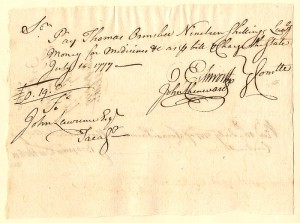 Sr
Pay Thomas Bemslee Nineteen Shillings Lawfl
Money for medicines &c as pr bill & Charge the State
July 10. 1777
£0. 19. 0
O Ellsworth
John Chenevard Comtte
To
John Lawrence Esqr
Treasr